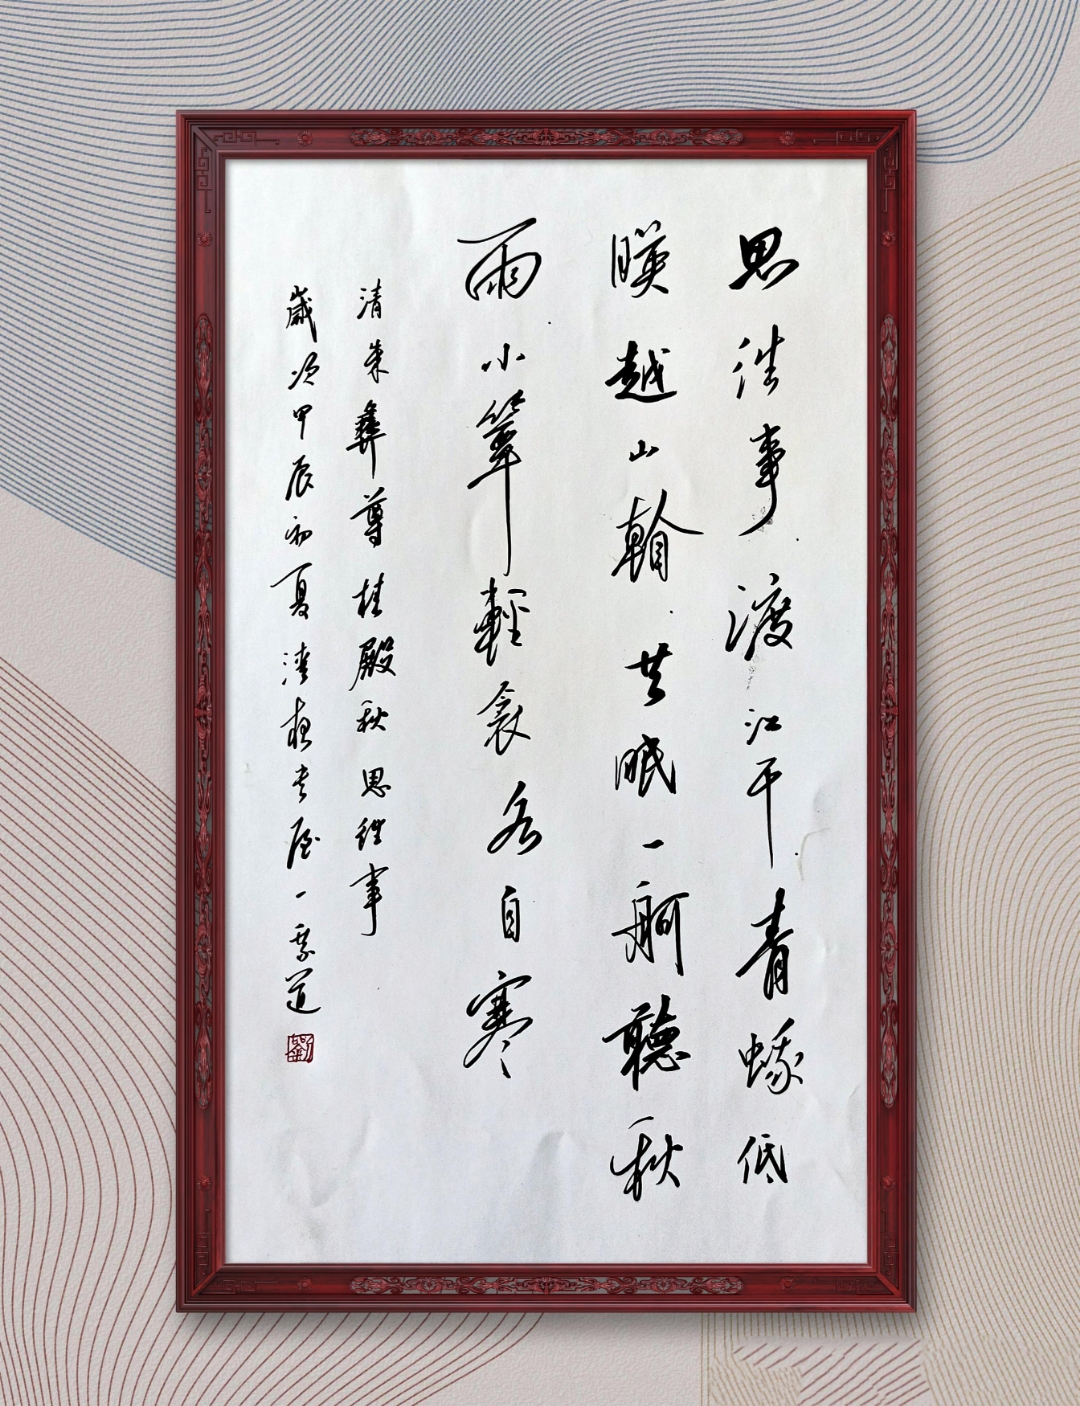 思往事渡江干青蛾低
暎越山看共眠一舸聽秋
雨小簟輕衾各自寒
清朱彝尊桂殿秋思往事
歲次甲辰初夏書屋一道
劉